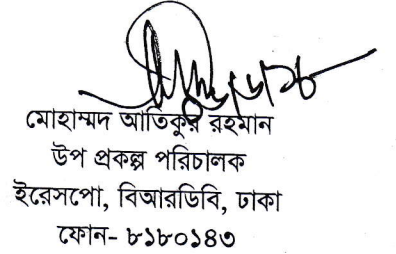 মোহাম্মদ আতিকুর রহমান
উপ প্রকল্প পরিচালক
ইরেসপো, বিআরডিবি, ঢাকা
ফোন- ৮১৮০১৪৩